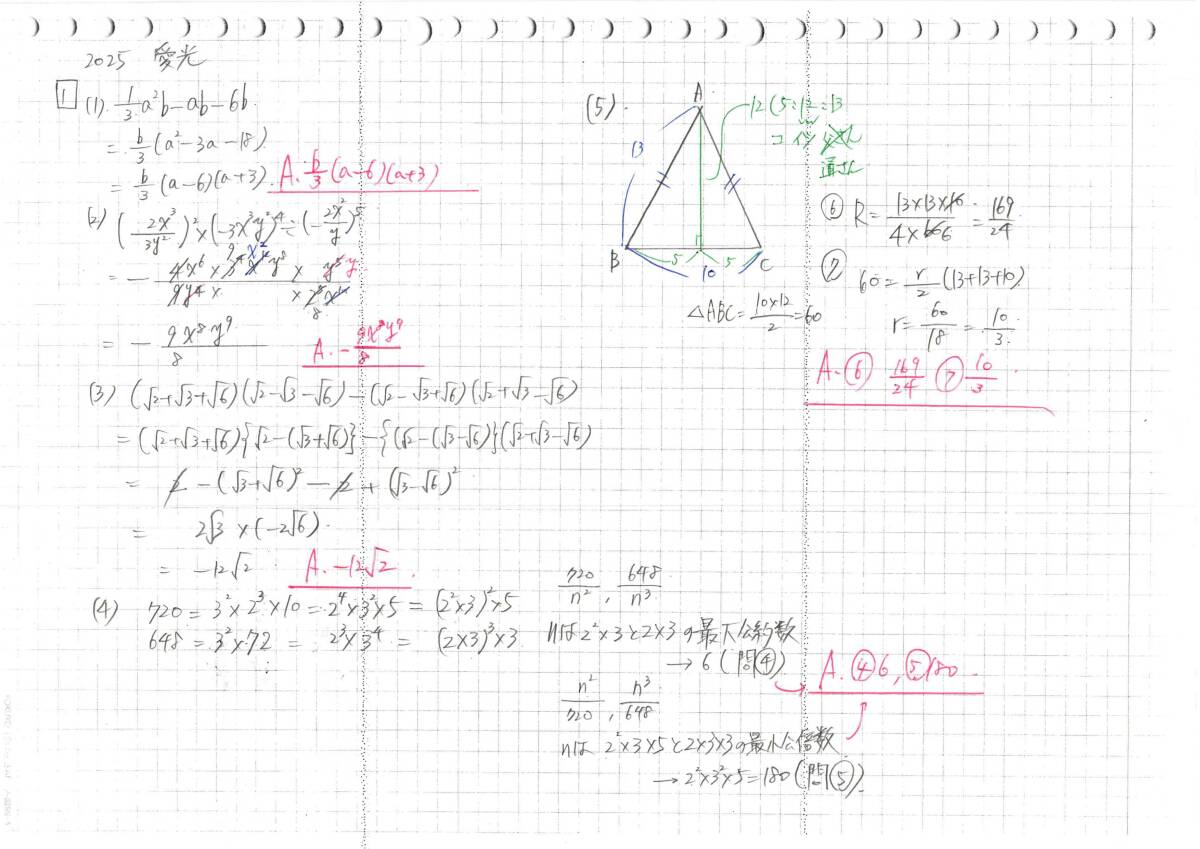 2025 愛光
1 (1) 1/3 a²b-ab-6b
= b/3 (a²-3a-18)
= b/3 (a-6)(a+3) A. b/3 (a-6)(a+3)
(2) (2x³/3y²)² × (-3x³y²)⁴ ÷ (-2x²/y)⁵
= - 9x⁸y⁹/8
A. - 9x⁸y⁹/8
(3) (√2+√3+√6)(√2-√3-√6)-(√2-√3+√6)(√2+√3-√6)
= (√2+√3+√6){√2-(√3+√6)}-{(√2-(√3-√6)}(√2+√3-√6)
= 2-(√3+√6)²-2+(√3-√6)²
= 2√3×(-2√6)
= -12√2 A. -12√2
(4) 720 = 3²×2³×10 = 2⁴×3²×5 = (2²×3)²×5
648 = 3²×72 = 2³×3⁴ = (2×3)³×3
720/n² , 648/n³
nは2²×3と2×3の最大公約数
→ 6 (問④)
n²/720 , n³/648
nは 2²×3×5と2×3×3の最小公倍数
→ 2²×3²×5=180 (問⑤)
A. ④6, ⑤180
(5)
A
13
12 (5:12:13
B
5
5
C
10
△ABC = 10×12/2 = 60
⑥ R = 13×13×10/4×60 = 169/24
⑦ 60 = r/2 (13+13+10)
r = 60/18 = 10/3
A. ⑥ 169/24 ⑦ 10/3